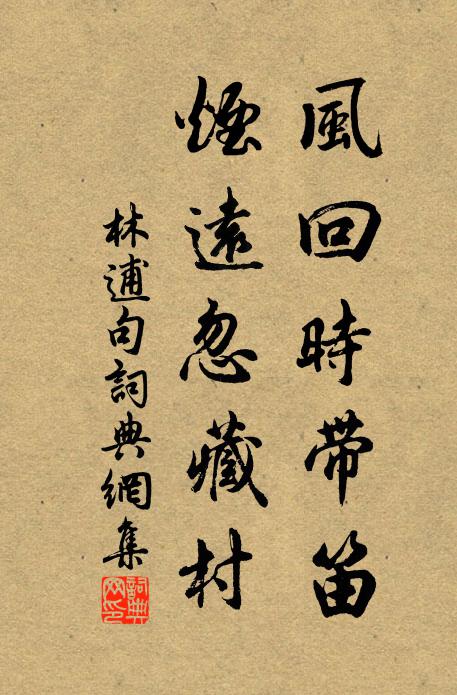 風回時帶笛
煙遠忽藏村
林逋句詞典網集
詞典网印